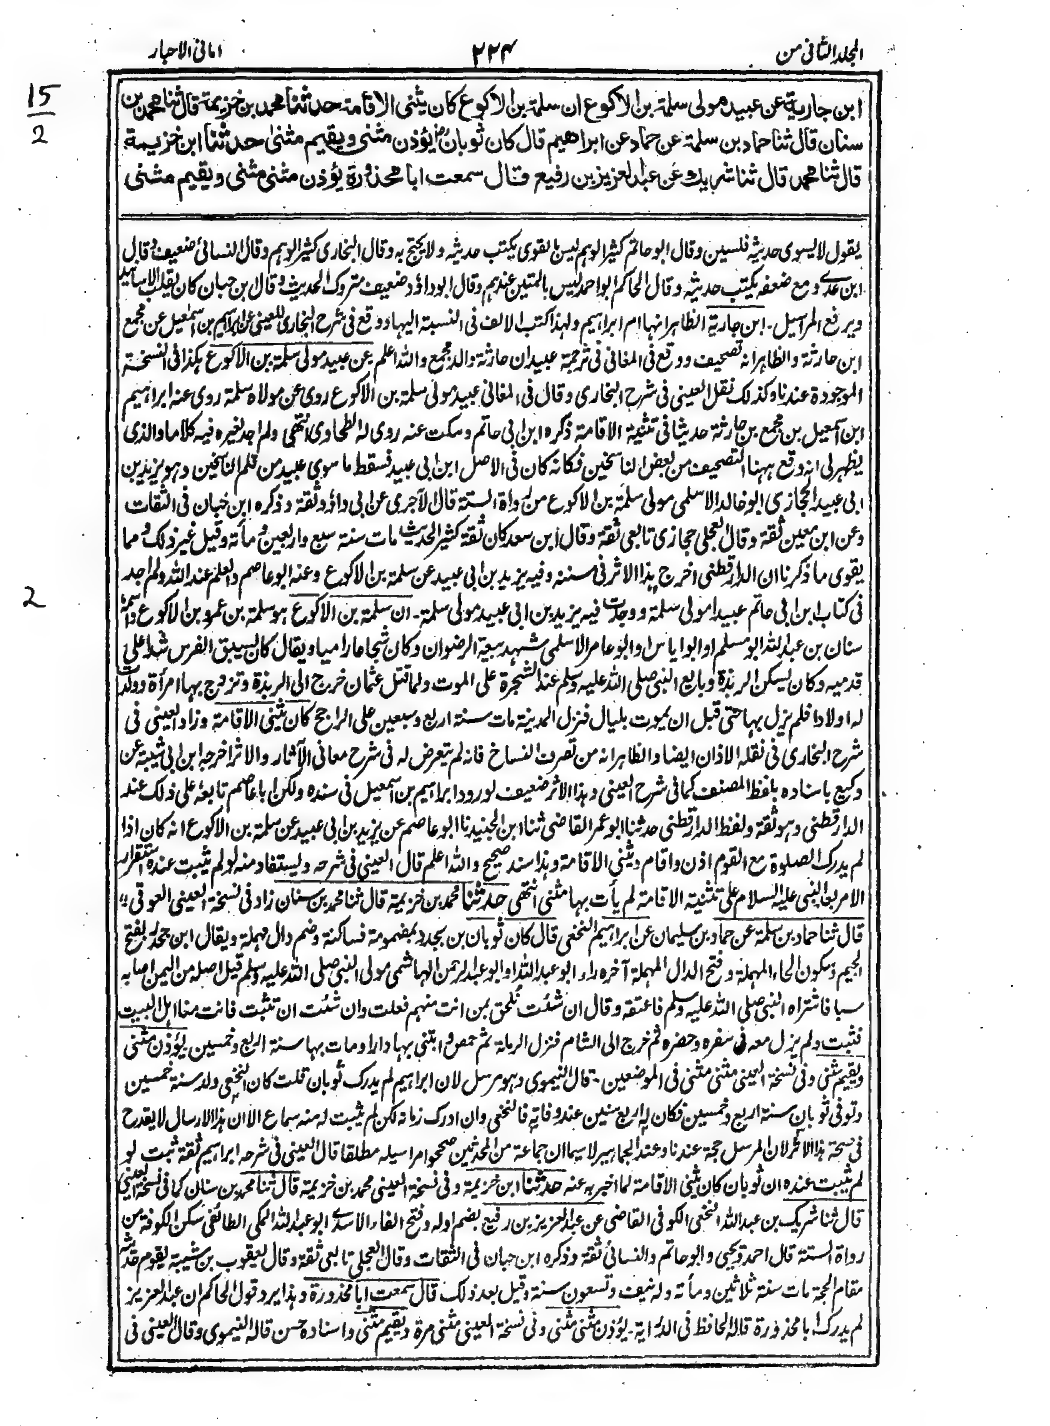 المجلد الثاني من
٢٢٤
اماني الاحبار
15
2
ابن جارية عن عبيد مولى سلمة بن الاكوع ان سلمة بن الاكوع كان يثنى الاقامة حدثنا محمد بن خزيمة قال ثنا محمد بن
سنان قال ثنا حماد بن سلمة عن حماد عن ابراهيم قال كان ثوبان يؤذن مثنى ويقيم مثنى حدثنا ابن خزيمة
قال ثنا محمد قال ثنا شريك عن عبد العزيز بن رفيع قال سمعت ابا محذورة يؤذن مثنى مثنى ويقيم مثنى
يقول لا يسوى حديثه فلسين وقال ابو حاتم كثير الوهم ليس بالقوى يكتب حديثه ولا يحتج به وقال البخارى كثير الوهم وقال النسائى ضعيف وقال
ابن عدى ومع ضعفه يكتب حديثه وقال الحاكم ابو احمد ليس بالمتين عندهم وقال ابو داؤد ضعيف متروك الحديث وقال ابن حبان كان يقلب الاسانيد
ويرفع المراسيل ۔ ابن جارية الظاهر انها ام ابراهيم ولهذا كتب الالف فى النسبة اليها ووقع فى شرح البخارى للعينى عن ابراهيم بن اسمعيل عن مجمع
ابن حارثة والظاهر انه تصحيف ووقع فى المغانى فى ترجمة عبيد ان حارثة والد مجمع والله اعلم عن عبيد مولى سلمة بن الاكوع هكذا فى النسخة
الموجودة عندنا وكذلك نقل العينى فى شرح البخارى وقال فى المغانى عبيد مولى سلمة بن الاكوع روى عن مولاه سلمة روى عنه ابراهيم
ابن اسمعيل بن مجمع بن جارثة حديثا فى تثنية الاقامة ذكره ابن ابى حاتم وسكت عنه روى له الطحاوى انتهى ولم اجد لغيره فيه كلاما والذى
يظهر لى انه وقع ههنا التصحيف من بعض الناسخين فكانه كان فى الاصل ابن ابى عبيد فسقط ما سوى عبيد من قلم الناسخين وهو يزيد بن
ابى عبيد الحجازى ابو خالد الاسلمى مولى سلمة بن الاكوع من رواة الستة قال الآجرى عن ابى داؤد ثقة وذكره ابن حبان فى الثقات
وعن ابن معين ثقة وقال العجلى حجازى تابعى ثقة وقال ابن سعد كان ثقة كثير الحديث مات سنة سبع واربعين ومأته وقيل غير ذلك ومما
يقوى ما ذكرنا ان الدارقطنى اخرج هذا الاثر فى سننه وفيه يزيد بن ابى عبيد عن سلمة بن الاكوع وعنه ابو عاصم والعلم عند الله ولم اجد
2
فى كتاب ابن ابى حاتم عبيدا مولى سلمة ووجدت فيه يزيد بن ابى عبيد مولى سلمة ۔ ان سلمة بن الاكوع هو سلمة بن عمرو بن الاكوع واسمه
سنان بن عبد الله ابو مسلم او ابو اياس وابو عامر الاسلمى شهد بيعة الرضوان وكان شجاعا راميا ويقال كان يسبق الفرس شدا على
قدميه وكان يسكن الربذة وبايع النبى صلى الله عليه وسلم عند الشجرة على الموت ولما قتل عثمان خرج الى الربذة وتزوج بها امرأة وولدت
له اولادا فلم يزل بها حتى قبل ان يموت بليال فنزل المدينة مات سنة اربع وسبعين على الراجح كان يثنى الاقامة وزاد العينى فى
شرح البخارى فى نقله الاذان ايضا والظاهر انه من تصرف النساخ فانه لم يتعرض له فى شرح معانى الآثار والاثر اخرجه ابن ابى شيبة عن
وكيع باسناده بلفظ المصنف كما فى شرح العينى وهذا الاثر ضعيف لورود ابراهيم بن اسمعيل فى سنده ولكن ابا عاصم تابعه على ذلك عند
الدارقطنى وهو ثقة ولفظ الدارقطنى حدثنا ابو عمر القاضى ثنا ابن الجنيد نا ابو عاصم عن يزيد بن ابى عبيد عن سلمة بن الاكوع انه كان اذا
لم يدرك الصلوة مع القوم اذن واقام ويثنى الاقامة وهذا سند صحيح والله اعلم قال العينى فى شرحه ويستفاد منه لو لم يثبت عنده استقرار
الامر بعد النبى عليه السلام على تثنية الاقامة لم يأت بها مثنى انتهى حدثنا محمد بن خزيمة قال ثنا محمد بن سنان زاد فى نسخة العينى العوقى
قال ثنا حماد بن سلمة عن حماد بن سليمان عن ابراهيم النخعى قال كان ثوبان بن بجدد بمضمومة فساكنة وضم دال مهملة ويقال ابن جحدر بفتح
الجيم وسكون الحاء المهملة وفتح الدال المهملة آخره راء ابو عبد الله او ابو عبد الرحمن الهاشمى مولى النبى صلى الله عليه وسلم قيل اصله من اليمن اصابه
سبا فاشتراه النبى صلى الله عليه وسلم فاعتقه وقال ان شئت تلحق بمن انت منهم فعلت وان شئت ان تثبت فانت منا اهل البيت
فثبت ولم يزل معه فى سفره وحضره ثم خرج الى الشام فنزل الرملة ثم حمص وابتنى بها دارا ومات بها سنة اربع وخمسين يؤذن مثنى
ويقيم مثنى وفى نسخة العينى مثنى مثنى فى الموضعين ۔ قال النيموى وهو مرسل لان ابراهيم لم يدرك ثوبان قلت كان النخعى ولد سنة خمسين
وتوفى ثوبان سنة اربع وخمسين فكان له اربع سنين عند وفاته فالنخعى وان ادرك زمانه لكن لم يثبت له منه سماع الا ان هذا الارسال لا يقدح
فى صحة هذا الاثر لان المرسل حجة عندنا وعند الجماهير لا سيما ان جماعة من المحدثين صححوا مراسيله مطلقا قال العينى فى شرحه ابراهيم ثقة ثبت لو
لم يثبت عنده ان ثوبان كان يثنى الاقامة لما اخبر به عنه حدثنا ابن خزيمة وفى نسخة العينى محمد بن خزيمة قال ثنا محمد بن سنان كما فى نسخة العينى
قال ثنا شريك بن عبد الله النخعى الكوفى القاضى عن عبد العزيز بن رفيع بضم اوله وفتح الفاء الاسدى ابو عبد الله المكى الطائفى سكن الكوفة من
رواة الستة قال احمد ويحيى وابو حاتم والنسائى ثقة وذكره ابن حبان فى الثقات وقال العجلى تابعى ثقة وقال يعقوب بن شيبة يقوم حديثه
مقام الحجة مات سنة ثلاثين ومأته وله نيف وتسعون سنة وقيل بعد ذلك قال سمعت ابا محذورة وهذا يرد قول الحاكم ان عبد العزيز
لم يدرك ابا محذورة قاله الحافظ فى الدراية ۔ يؤذن مثنى مثنى وفى نسخة العينى مثنى مرة ويقيم مثنى واسناده حسن قاله النيموى وقال العينى فى